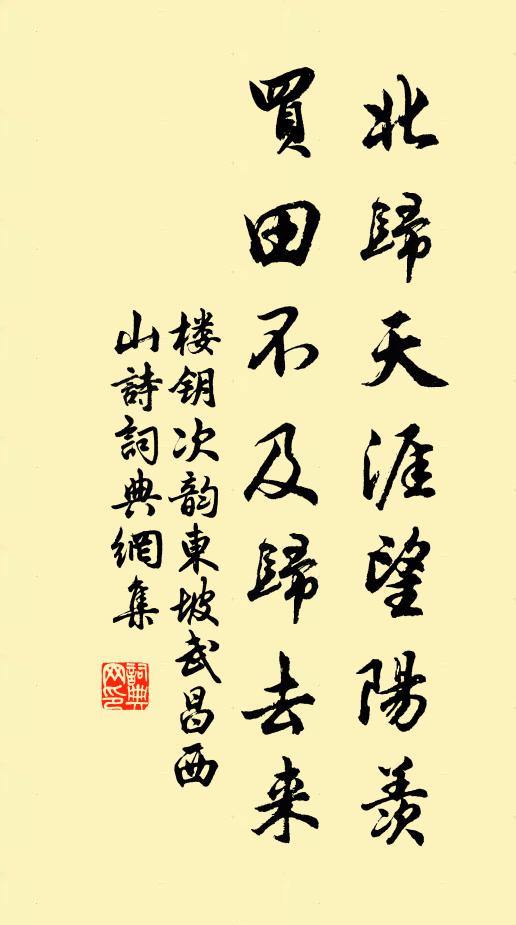 北歸天涯望陽羨
買田不及歸去来
楼钥次韵東坡武昌西
山詩詞典網集
詞典網印